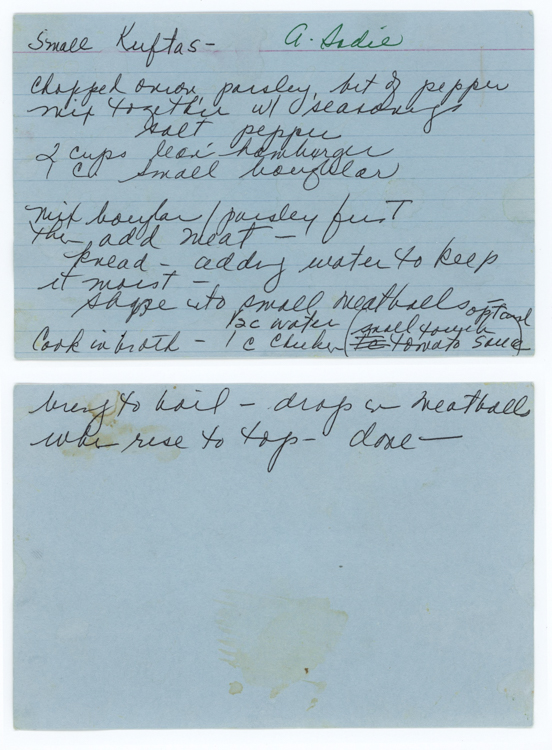 Small Kuftas - A. Sadie
chopped onion, parsley, bit of pepper
mix together w/ seasonings
salt pepper
2 cups lean hamburger
1 C small bouglar
mix bouglar / parsley first
then add meat -
knead - adding water to keep
it moist -
shape into small meatballs
1/2 c water
Cook in broth - 1 c Chicken (small touch tomato sauce) optional
bring to boil - drop in meatballs
when rise to top - done -